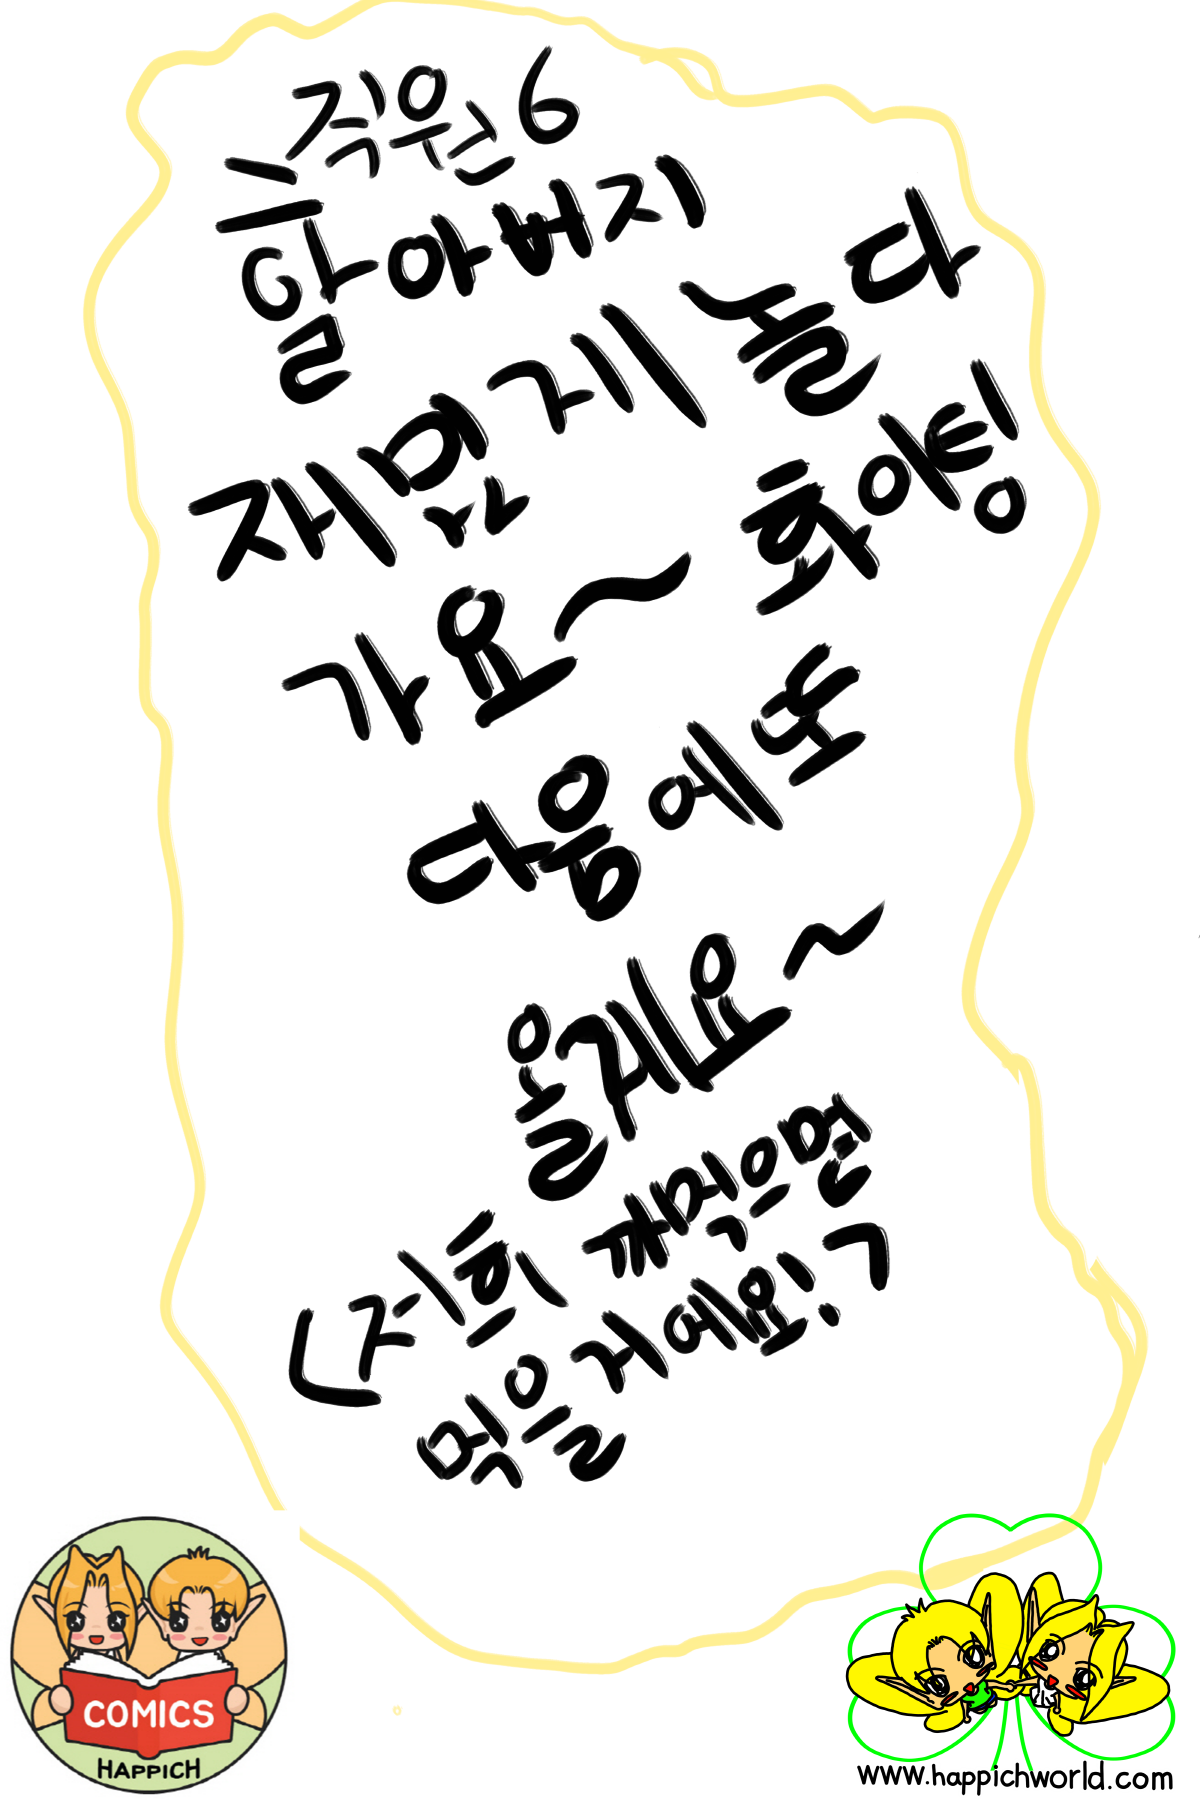 직원6
할아버지
재밌게 놀다
가요~ 화이팅
다음에도
올게요~
(저희 깨먹으면
먹을거에요!)
COMICS
HAPPICH
www.happichworld.com